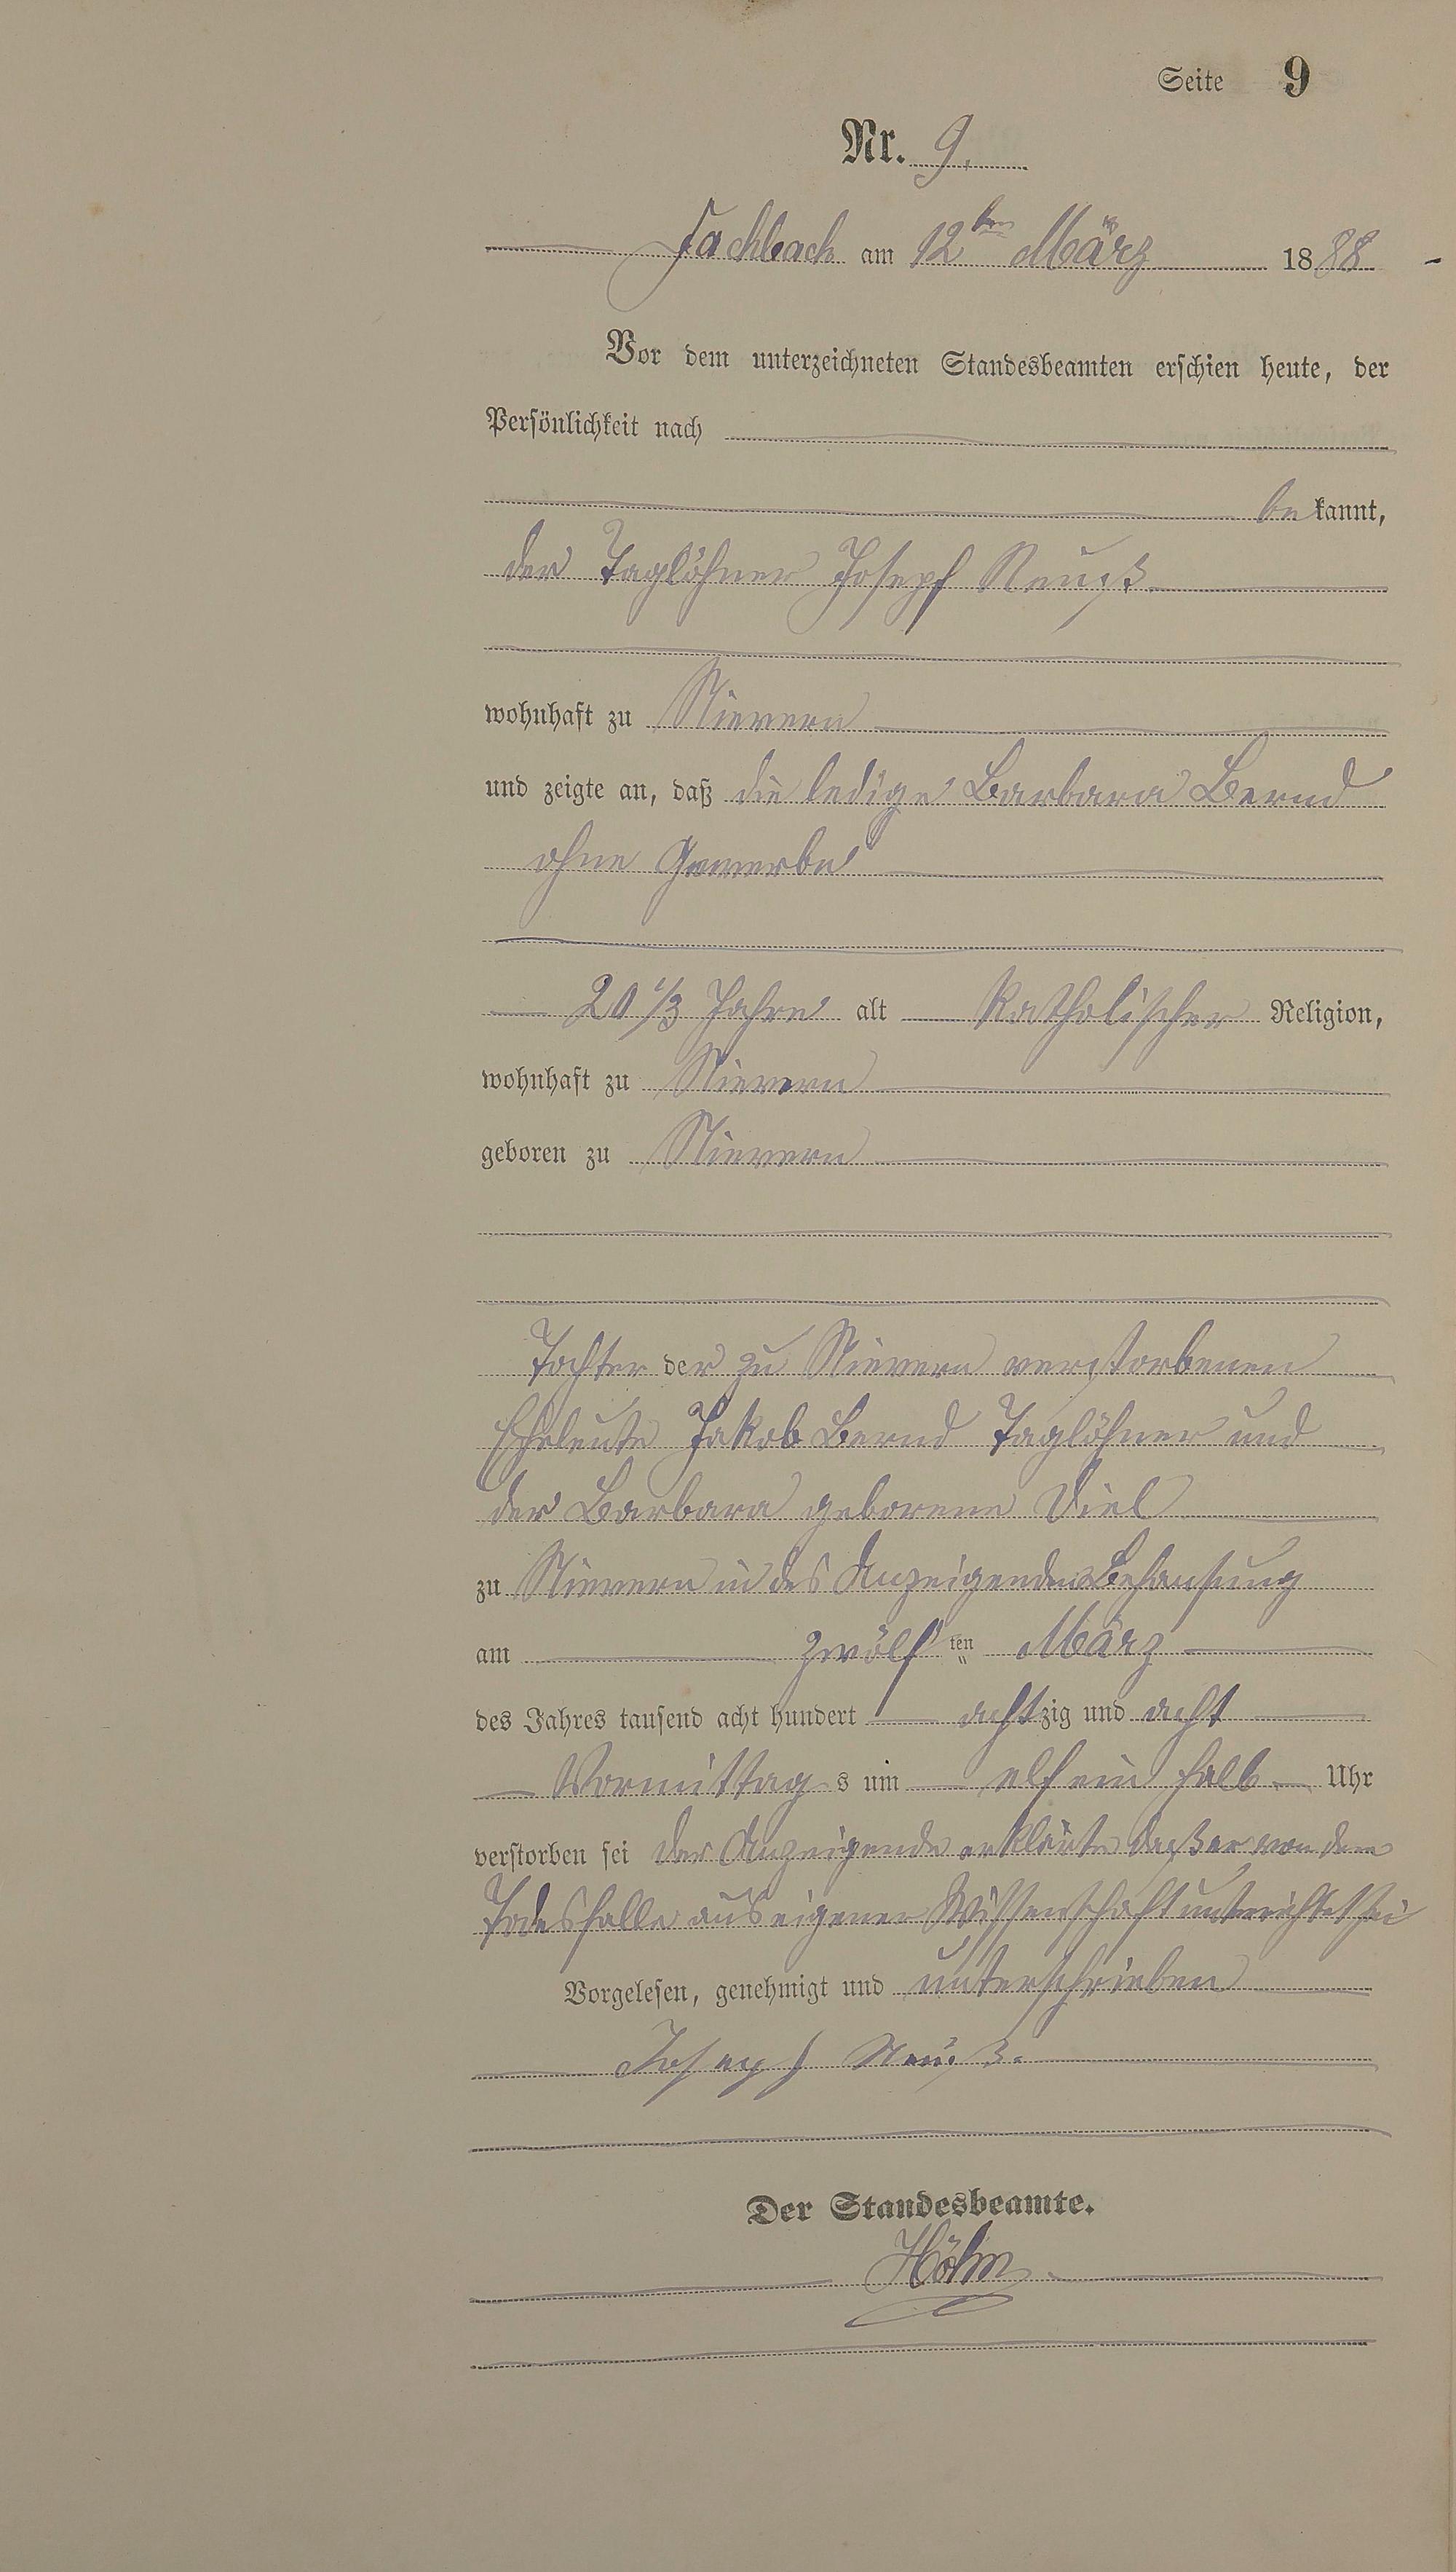 Seite 9
Nr. 9.
Fachbach am 12ten März 1888
Vor dem unterzeichneten Standesbeamten erschien heute, der
Persönlichkeit nach
bekannt,
der Taglöhner Josepf Neuß
wohnhaft zu Nievern
und zeigte an, daß die ledige Barbara Bernd
ohne Gewerbe
20 1/3 Jahre alt katholischer Religion,
wohnhaft zu Nievern
geboren zu Nievern
Tochter der zu Nievern verstorbenen
Eheleute Jakob Bernd Taglöhner und
der Barbara geborene Diel
zu Nievern in des Anzeigenden Behausung
am zwölften März
des Jahres tausend acht hundert achtzig und acht
Vormittags um elf ein halb Uhr
verstorben sei Der Anzeigende erklärte daß er von dem
Todesfalle aus eigener Wissenschaft unterrichtet sei
Vorgelesen, genehmigt und unterschrieben
Joseph Neuß.
Der Standesbeamte.
Höhn